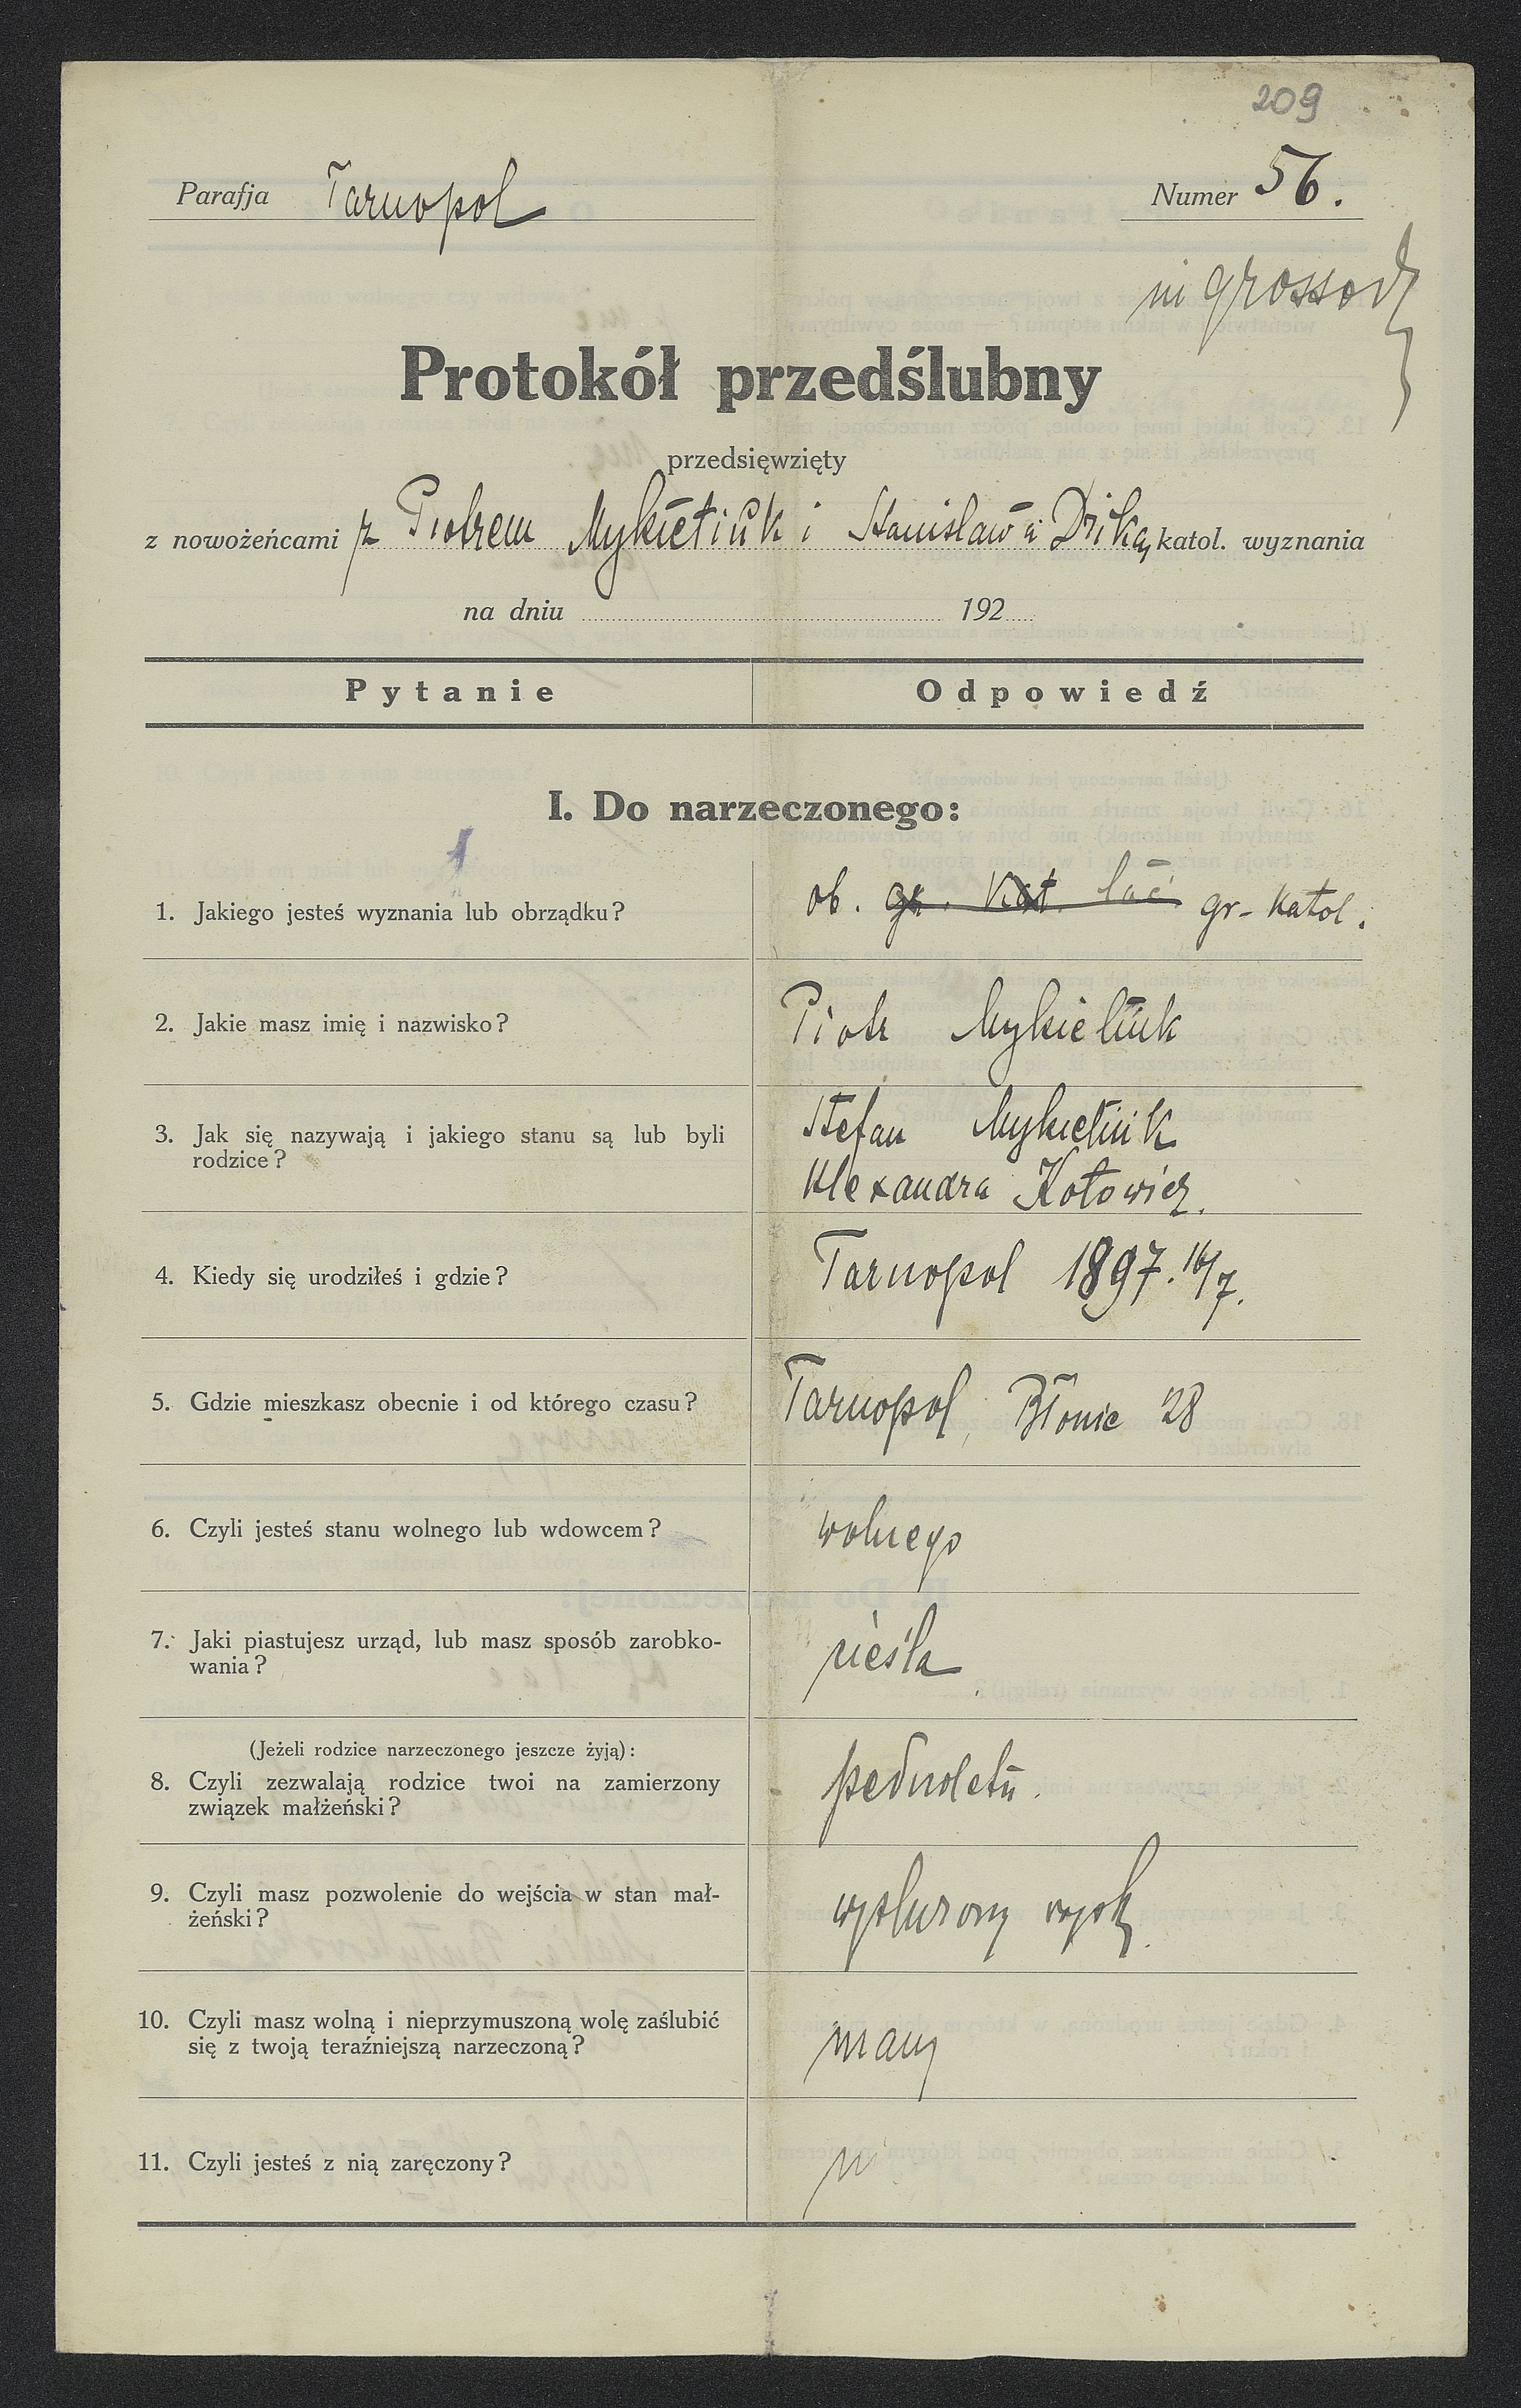 209
Parafja Tarnopol
Numer 56.
ingrossed
Protokół przedślubny
przedsięwzięty
z nowożeńcami z Piotrem Mykietiuk i Stanisławą Dziką katol. wyznania
na dniu 192
Pytanie Odpowiedź
I. Do narzeczonego:
1. Jakiego jesteś wyznania lub obrządku?
ob. gr. kat. łać. gr-katol.
2. Jakie masz imię i nazwisko?
Piotr Mykietiuk
3. Jak się nazywają i jakiego stanu są lub byli
rodzice?
Stefan Mykietiuk
Alexandra Kotowicz.
4. Kiedy się urodziłeś i gdzie?
Tarnopol 1897. 16/7.
5. Gdzie mieszkasz obecnie i od którego czasu?
Tarnopol, Błonie 28
6. Czyli jesteś stanu wolnego lub wdowcem?
wolnego
7. Jaki piastujesz urząd, lub masz sposób zarobko-
wania?
cieśla
(Jeżeli rodzice narzeczonego jeszcze żyją):
8. Czyli zezwalają rodzice twoi na zamierzony
związek małżeński?
pełnoletni.
9. Czyli masz pozwolenie do wejścia w stan mał-
żeński?
wysłużony wojsk.
10. Czyli masz wolną i nieprzymuszoną wolę zaślubić
się z twoją teraźniejszą narzeczoną?
mam
11. Czyli jesteś z nią zaręczony?